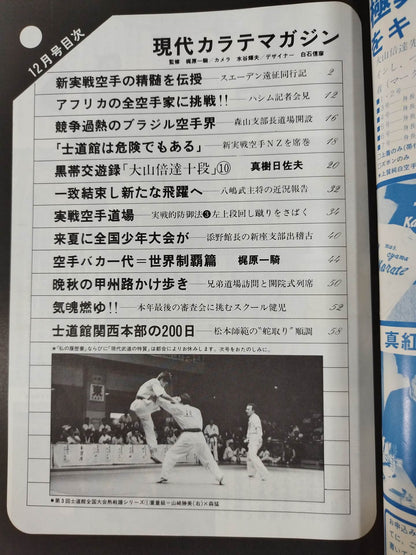 12月号目次
現代カラテマガジン
監修 梶原一騎/カメラ 水谷輝夫/デザイナー 白石信雄
新実戦空手の精髄を伝授 スエーデン遠征同行記 2
アフリカの全空手家に挑戦!! ハシム記者会見 12
競争過熱のブラジル空手界 森山支部長道場開設 16
「士道館は危険でもある」 新実戦空手NZを席巻 18
黒帯交遊録「大山倍達十段」⑩ 真樹日佐夫 20
一致結束し新たな飛躍へ 八嶋武主将の近況報告 32
実戦空手道場 実戦的防御法❸左上段回し蹴りをさばく 34
来夏に全国少年大会が 添野館長の新座支部出稽古 40
空手バカ一代=世界制覇篇 梶原一騎 44
晩秋の甲州路かけ歩き 兄弟道場訪問と開院式列席 50
気魂燃ゆ!! 本年最後の審査会に挑むスクール健児 52
士道館関西本部の200日 松本師範の"舵取り"順調 58
★「私の履歴書」ならびに"現代武道の特質"は都合によりお休みします。次号をおたのしみに。
★第3回士道館全国大会熱戦譜シリーズ①重量級=山崎勝美(右)×森猛
真紅
Karate